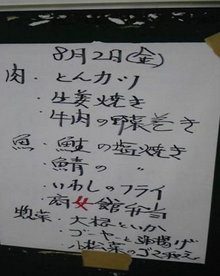 8月2日(金)
肉・とんカツ
・生姜焼き
・牛肉の野菜巻き
魚・鮭の塩焼き
・鯖の 〃
・いわしのフライ
女館弁当
惣菜・大根といか
・ゴーヤと油揚げ
・小松菜のごま和え